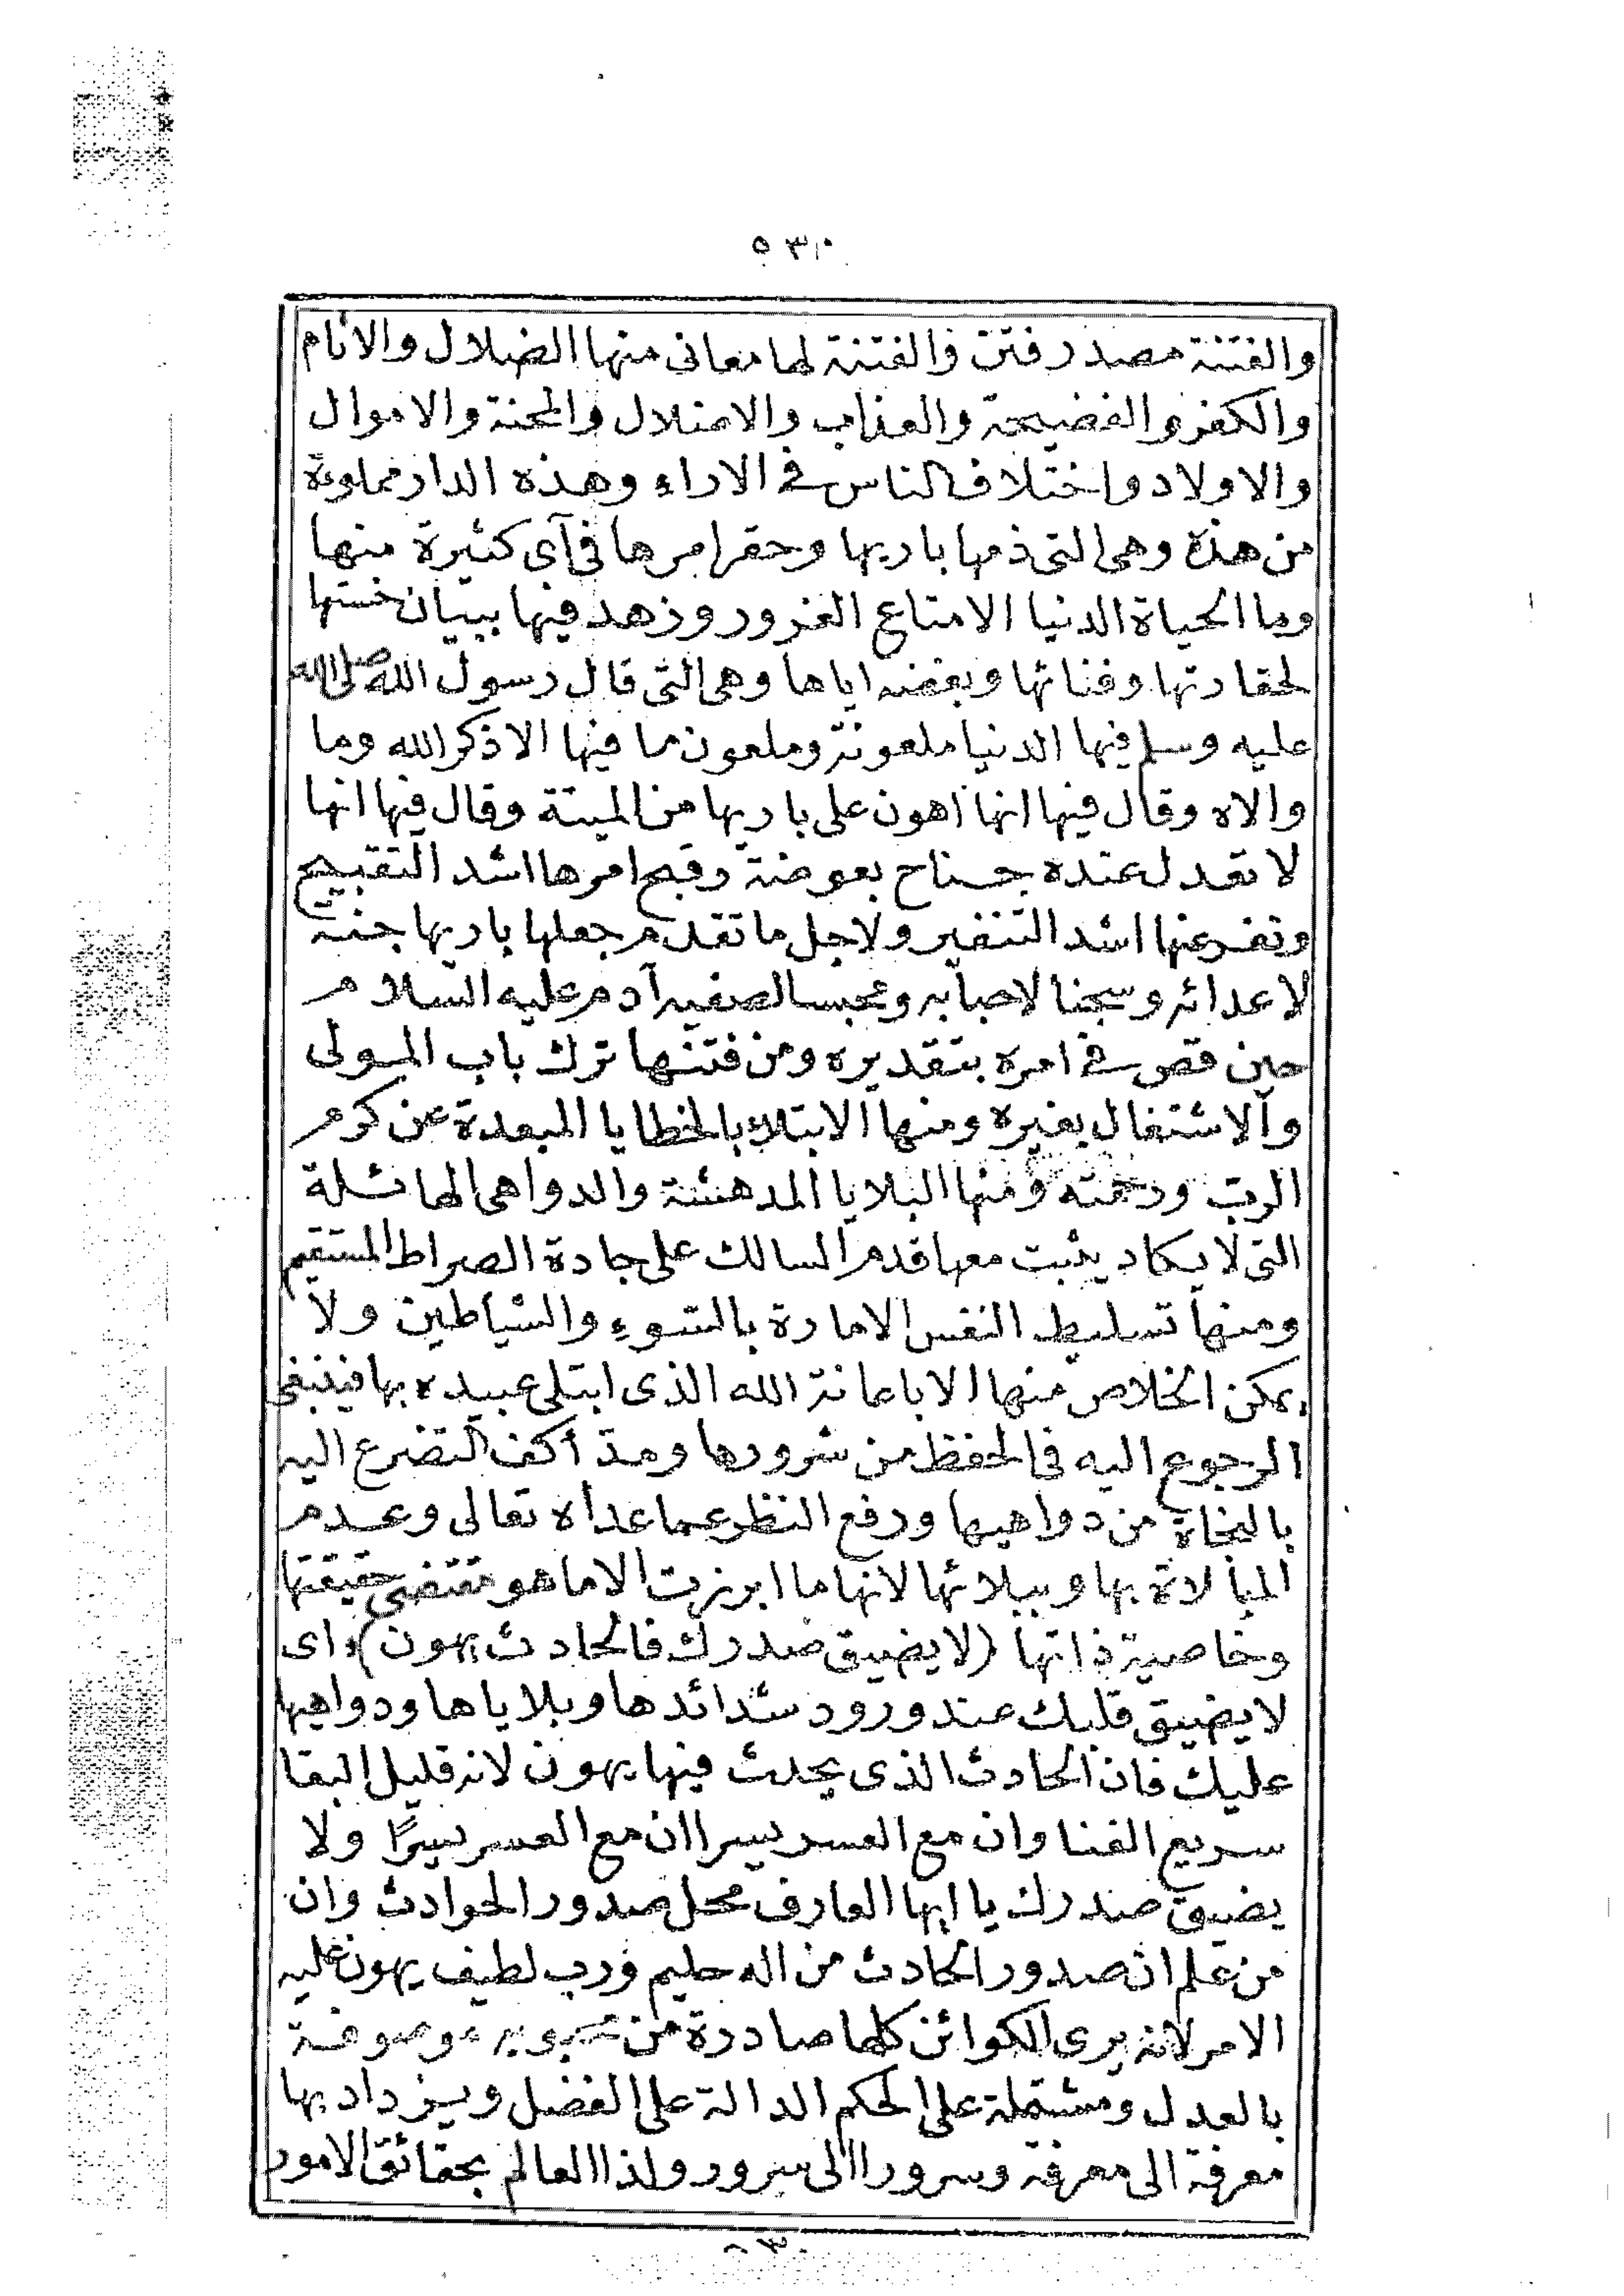 ٥٣٠
والفتنة مصدر فتن والفتنة لها معانى منها الضلال والاثام
والكفر والفضيحة والعذاب والاضلال والمحنة والاموال
والاولاد واختلاف الناس فى الاراء وهذه الدار مملوءة
من هذه وهى التى ذمها باريها وحقر امرها فى آى كثيرة منها
وما الحياة الدنيا الا متاع الغرور وزهد فيها ببيان خستها
لحقارتها وفنائها وبغضه اياها وهى التى قال رسول الله صلى الله
عليه وسلم فيها الدنيا ملعونة وملعون ما فيها الا ذكر الله وما
والاه وقال فيها انها اهون على باريها من الميتة وقال فيها انها
لا تعدل عنده جناح بعوضة وقبح امرها اشد التقبيح
ونفر عنها اشد التنفير ولاجل ما تقدم جعلها باريها جنة
لاعدائه وسجنا لاحبابه ومحبسا لصفيه آدم عليه السلام
حين قصر فى امره بتقديره ومن فتنها ترك باب المولى
والاشتغال بغيره ومنها الابتلاء بالخطايا المبعدة عن كرم
الرب ورحمته ومنها البلايا المدهشة والدواهى الهائلة
التى لا يكاد يثبت معها قدم السالك على جادة الصراط المستقيم
ومنها تسليط النفس الامارة بالسوء والشياطين ولا
يمكن الخلاص منها الا باعانة الله الذى ابتلى عبيده بها فينبغى
الرجوع اليه فى الحفظ من شرورها ومد أكف التضرع اليه
بالنجاة من دواهيها ورفع النظر عما عداه تعالى وعدم
المبالاة بها وببلائها لانها ما ابرزت الا ما هو مقتضى حقيقتها
وخاصية ذاتها (لا يضيق صدرك فالحادث يهون) اى
لا يضيق قلبك عند ورود شدائدها وبلاياها ودواهيها
عليك فان الحادث الذى يحدث فيها يهون لانه قليل البقا
سريع الفنا وان مع العسر يسرا ان مع العسر يسرًا ولا
يضيق صدرك يا ايها العارف محل صدور الحوادث وان
من علم ان صدور الحادث من اله حليم ورب لطيف يهون عليه
الامر لانه يرى الكوائن كلها صادرة من محبوبه موصوفة
بالعدل ومشتملة على الحكم الدالة على الفضل ويزداد بها
معرفة الى معرفة وسرورا الى سرور ولذا العالم بحقائق الامور